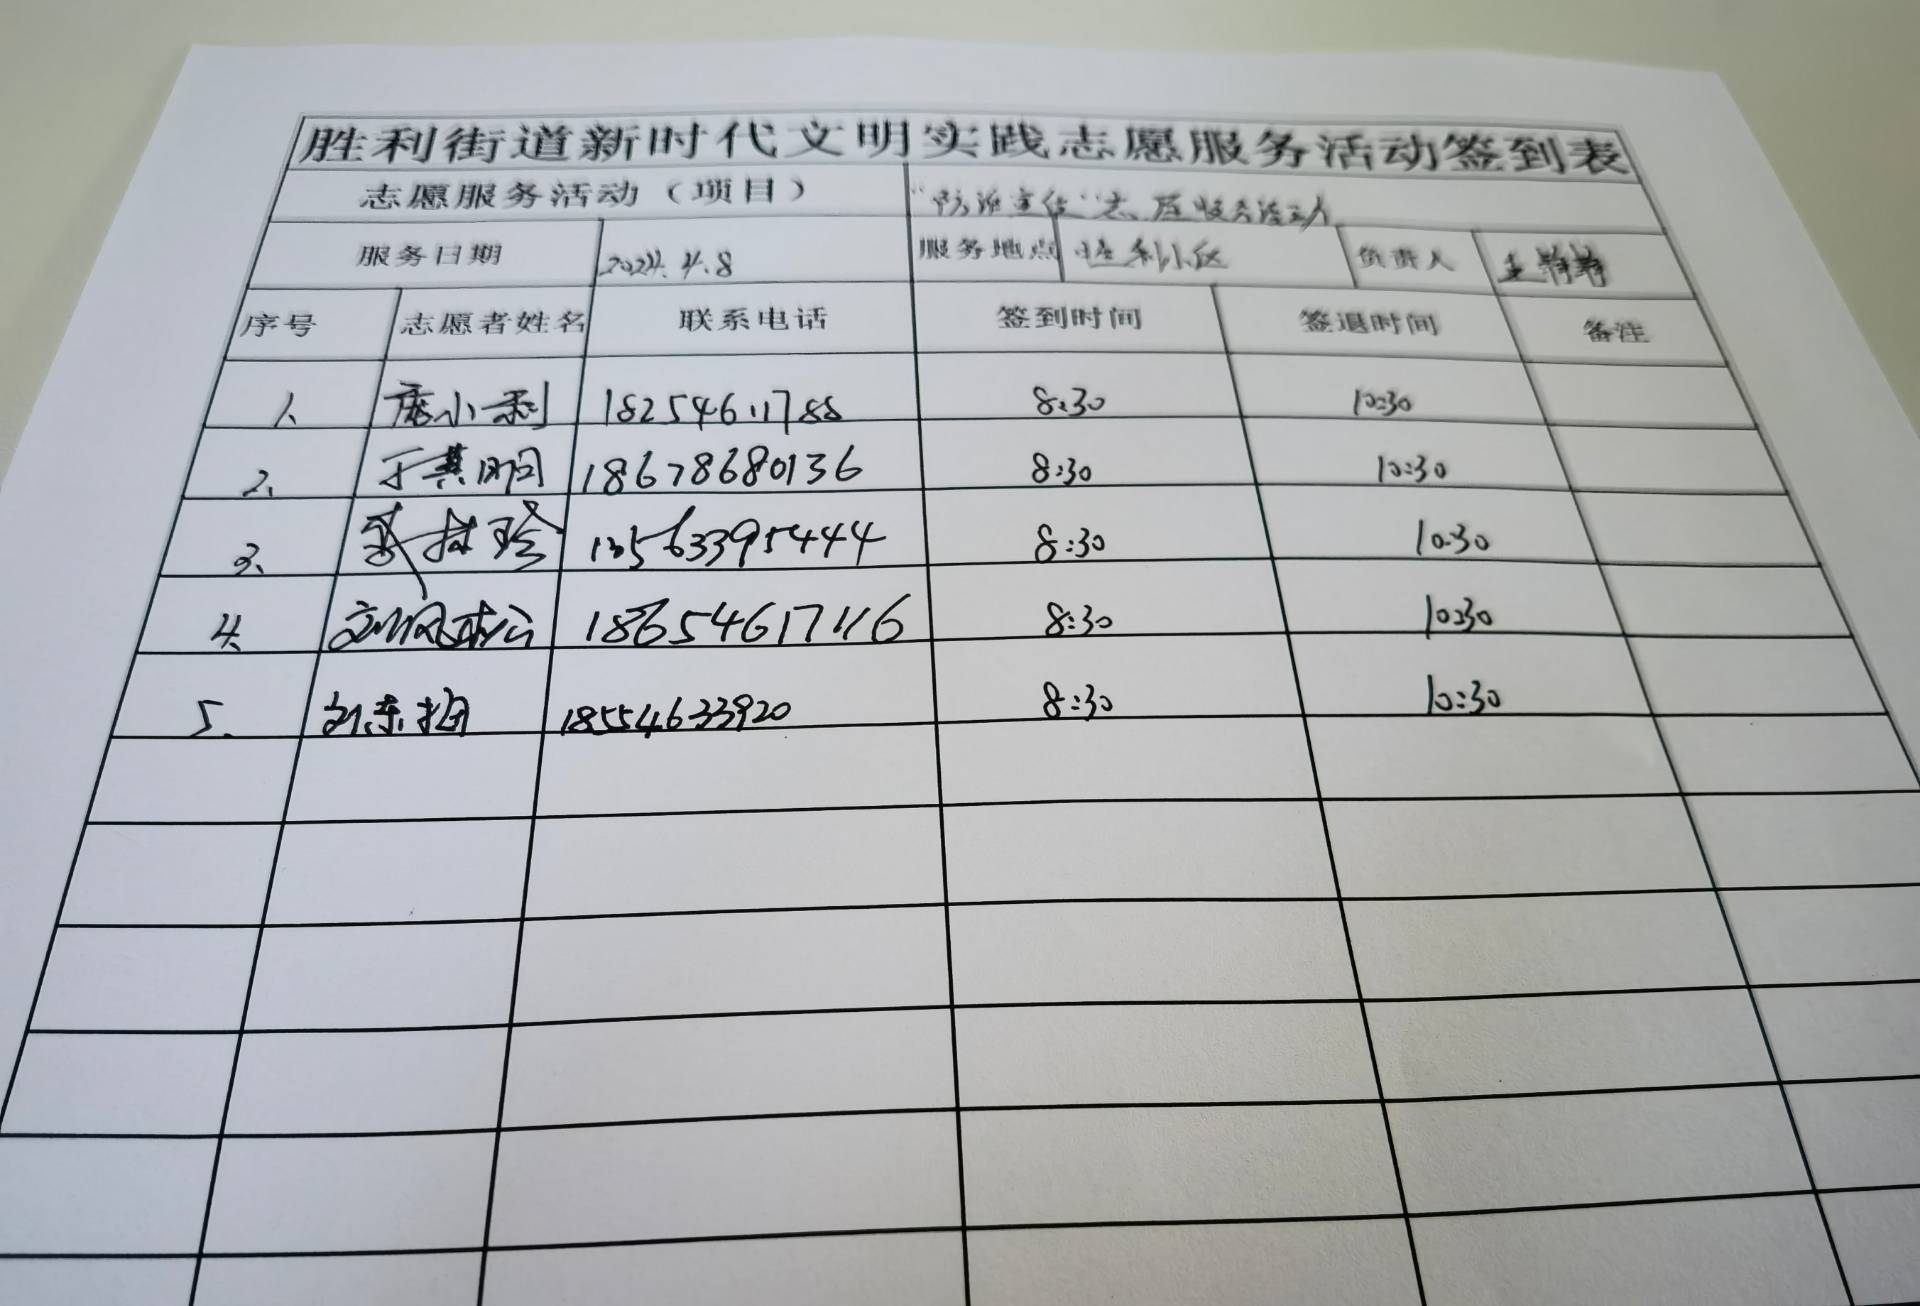 胜利街道新时代文明实践志愿服务活动签到表
志愿服务活动（项目） "防诈宣传"志愿服务活动
服务日期 2024.4.8 服务地点 小区 负责人 王静静
序号 志愿者姓名 联系电话 签到时间 签退时间 备注
1、 小利 18254611788 8:30 10:30
2、 于其明 18678680136 8:30 10:30
3、 13563395444 8:30 10:30
4、 18654617116 8:30 10:30
5、 刘东梅 18554633920 8:30 10:30